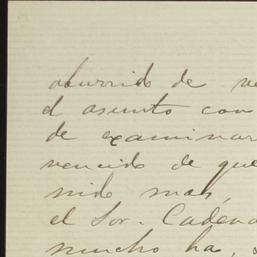 aburrido de
el asunto con
de examinar
vencido de que
nido mas,
el Sor. Cadena
mucho ha,